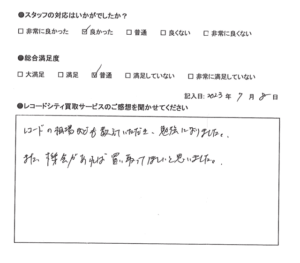 ●スタッフの対応はいかがでしたか?
□ 非常に良かった ☑ 良かった □ 普通 □ 良くない □ 非常に良くない
●総合満足度
□ 大満足 □ 満足 ☑ 普通 □ 満足していない □ 非常に満足していない
記入日: 2023 年 9 月 8 日
●レコードシティ買取サービスのご感想を聞かせてください
レコードの相場なども教えていただき、勉強になりました。
また、機会があれば買い取ってほしいと思いました。